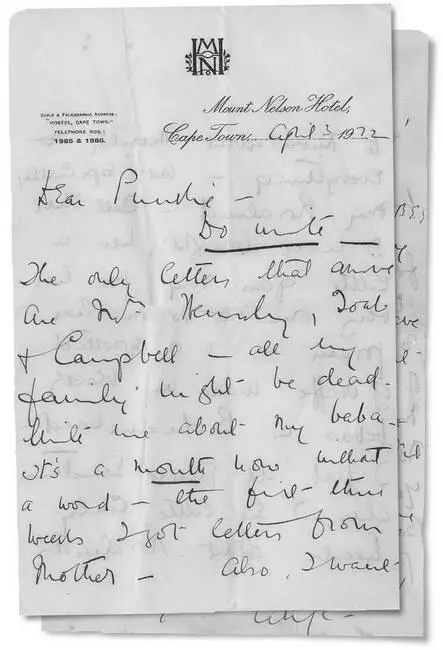 MNH
CABLE & TELEGRAPHIC ADDRESS:
"HOSTEL, CAPE TOWN."
TELEPHONE NOS:
1985 & 1986.
Mount Nelson Hotel,
Cape Town, April 3 1922
Dear Punkie –
Do write –
The only letters that arrive
are Mrs
& Campbell – all my
family might be dead –
Write me about my baba –
it's a month now without
a word – the first three
weeks I got letters from
Mother – Also, I want